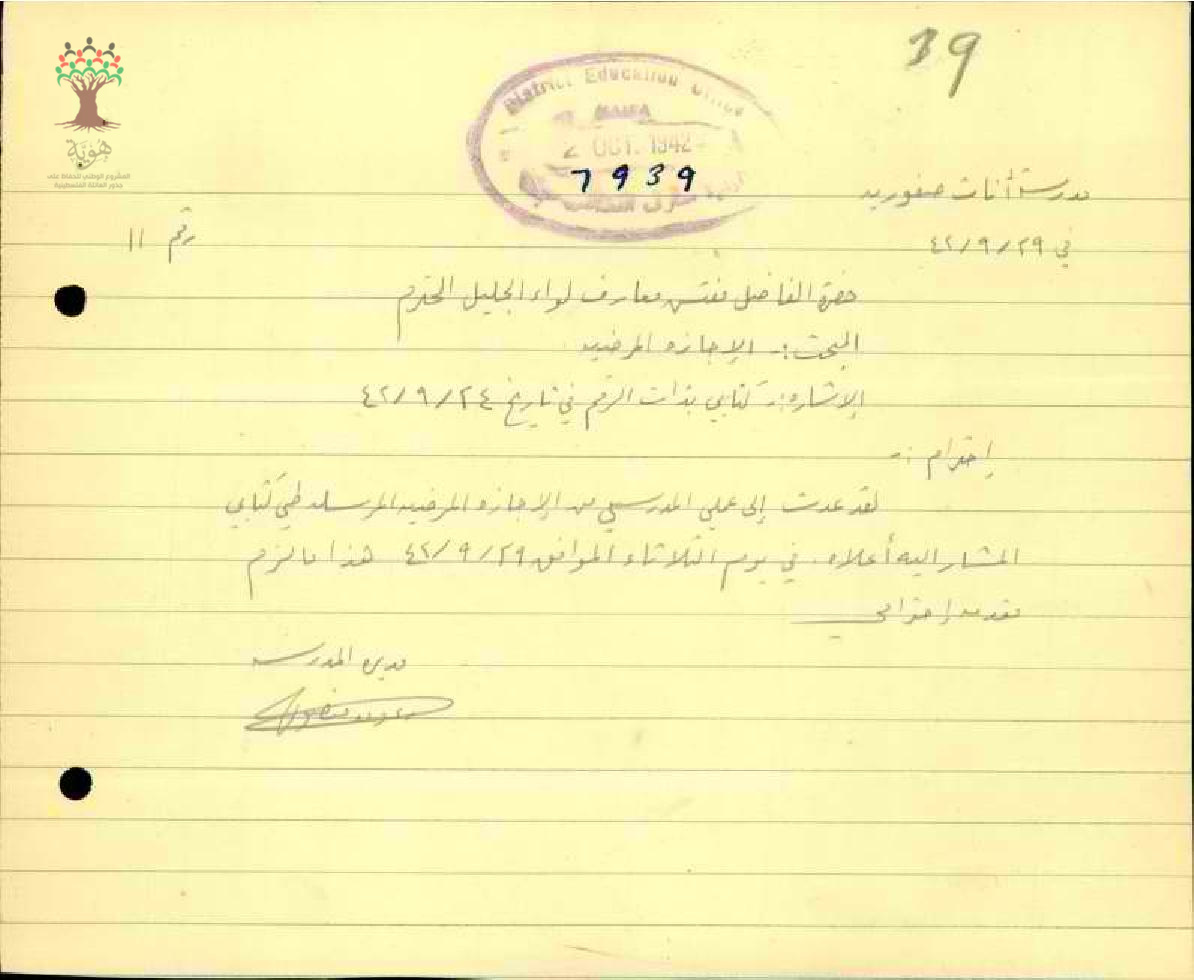 39
هوية
المشروع الوطني للحفاظ على
جذور العائلة الفلسطينية
District Education Office
HAIFA
2 OCT. 1942
7939
مدرسة أناث صفوريه
في ٢٩/٩/٤٢
رقم ١١
حضرة الفاضل مفتش معارف لواء الجليل المحترم
المبحث :- الإجازه المرضيه
الإشاره :- كتابي بذات الرقم في تاريخ ٢٤/٩/٤٢
إحترام :-
لقد عدت إلى عملي المدرسي من الإجازه المرضيه المرسله طي كتابي
المشار اليه أعلاه. في يوم الثلاثاء الموافق ٢٩/٩/٤٢ هذا ما لزم
مقدمه إحترامي
مديره المدرسه